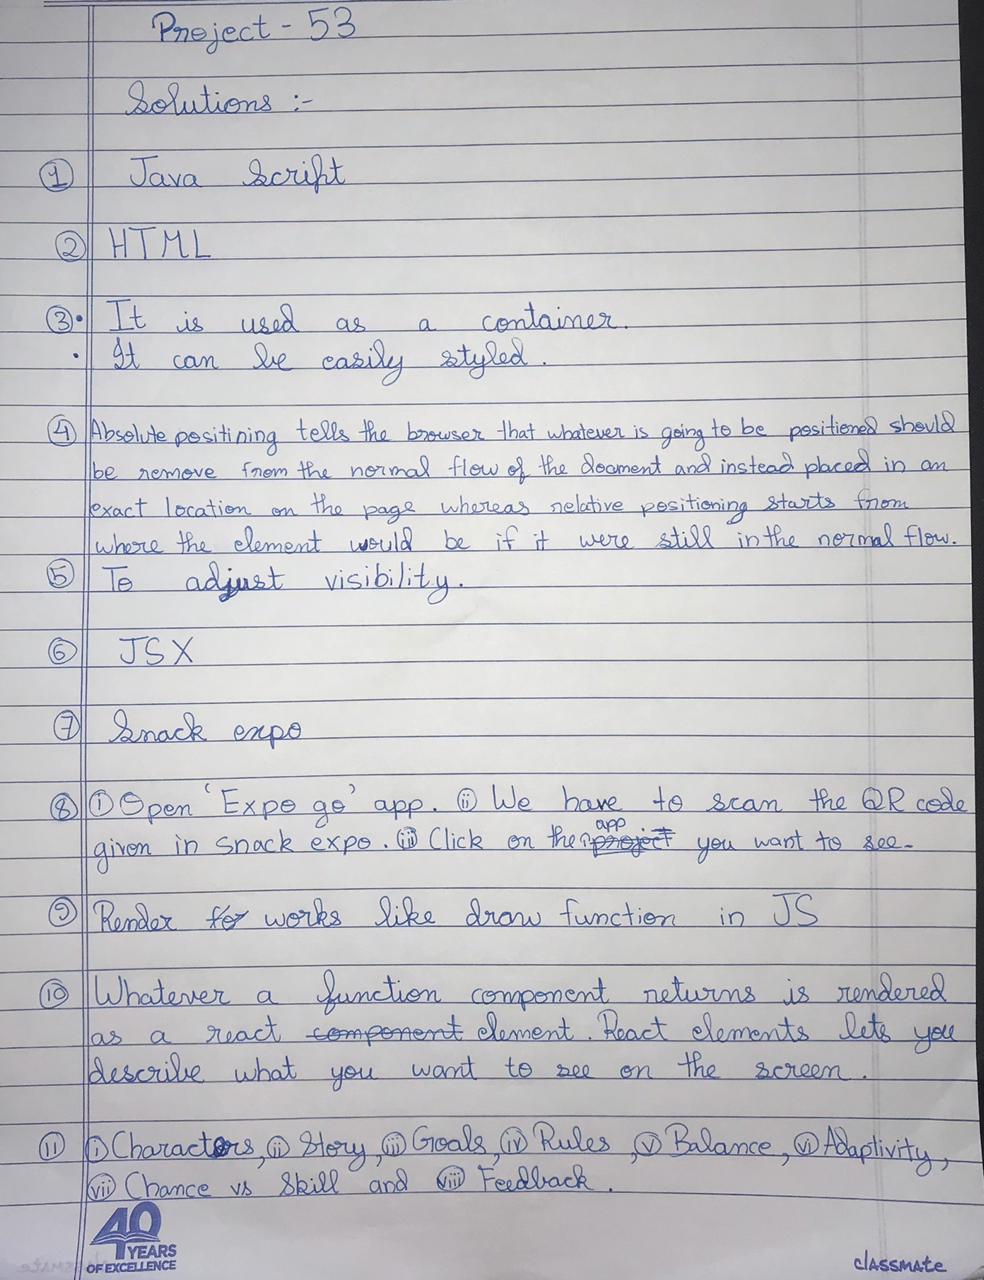 Project - 53
Solutions :-
① Java Script
② HTML
③ • It is used as a container.
• It can be easily styled.
④ Absolute positining tells the browser that whatever is going to be positioned should
be remove from the normal flow of the docment and instead placed in an
exact location on the page whereas relative positioning starts from
where the element would be if it were still in the normal flow.
⑤ To adjust visibility.
⑥ JSX
⑦ Snack expo
⑧ ⓘ Open 'Expo go' app. ⓘⓘ We have to scan the QR code
given in snack expo. ⓘⓘⓘ Click on the app you want to see.
⑨ Render works like draw function in JS
⑩ Whatever a function component returns is rendered
as a react component element. React elements lets you
describe what you want to see on the screen.
⑪ ⓘ Characters, ⓘⓘ Story, ⓘⓘⓘ Goals, ⓘⓥ Rules, ⓥ Balance, ⓥⓘ Adaptivity,
ⓥⓘⓘ Chance vs Skill and ⓥⓘⓘⓘ Feedback.
40
YEARS
OF EXCELLENCE
classmate